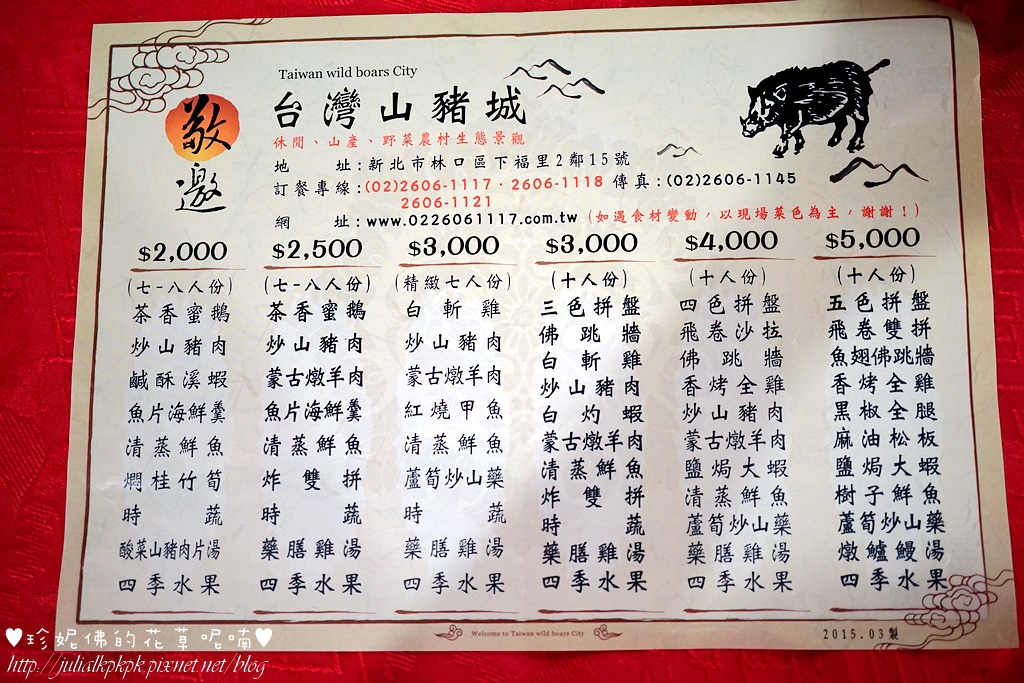 Taiwan wild boars City
敬邀
台灣山豬城
休閒、山產、野菜農村生態景觀
地 址:新北市林口區下福里2鄰15號
訂餐專線:(02)2606-1117·2606-1118 傳真:(02)2606-1145
2606-1121
網 址:www.0226061117.com.tw (如遇食材變動,以現場菜色為主,謝謝!)
$2,000
(七-八人份)
茶香蜜鵝
炒山豬肉
鹹酥溪蝦
魚片海鮮羹
清蒸鮮魚
燜桂竹筍
時蔬
酸菜山豬肉片湯
四季水果
$2,500
(七-八人份)
茶香蜜鵝
炒山豬肉
蒙古燉羊肉
魚片海鮮羹
清蒸鮮魚
炸雙拼
時蔬
藥膳雞湯
四季水果
$3,000
(精緻七人份)
白斬雞
炒山豬肉
蒙古燉羊肉
紅燒甲魚
清蒸鮮魚
蘆筍炒山藥
時蔬
藥膳雞湯
四季水果
$3,000
(十人份)
三色拼盤
佛跳牆
白斬雞
炒山豬肉
白灼蝦
蒙古燉羊肉
清蒸鮮魚
炸雙拼
時蔬
藥膳雞湯
四季水果
$4,000
(十人份)
四色拼盤
飛卷沙拉
佛跳牆
香烤全雞
炒山豬肉
蒙古燉羊肉
鹽焗大蝦
清蒸鮮魚
蘆筍炒山藥
藥膳雞湯
四季水果
$5,000
(十人份)
五色拼盤
飛卷雙拼
魚翅佛跳牆
香烤全雞
黑椒全腿
麻油松板
鹽焗大蝦
樹子鮮魚
蘆筍炒山藥
燉鱸鰻湯
四季水果
Welcome to Taiwan wild boars City
2015.03製
♥珍妮佛的花草呢喃♥
http://julialkpkpk.pixnet.net/blog